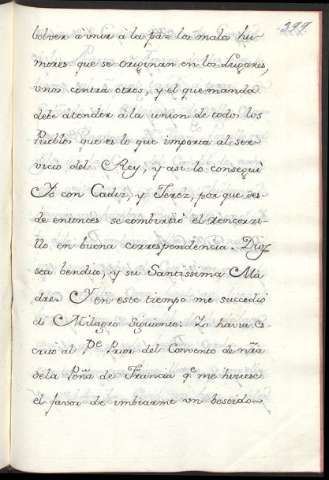 299
bolver a vnir a la paz los malos hu-
mores que se originan en los Lugares,
vnos contra otros, y el que manda
debe atender a la union de todos los
Pueblos que es lo que importa al ser-
vicio del Rey, y asi lo consegui
Yo con Cadiz, y Xerez, porque des-
de entonces se combirtiò el rencorci-
llo en buena correspondencia. Dios
sea bendito, y su Santissima Ma-
dre. Y en este tiempo me succedio
el Milagro Siguiente. Yo havia es-
crito al Pe. Prior del Convento de nrã
de la Peña de Francia qe. me hiciese
el favor de imbiarme vn